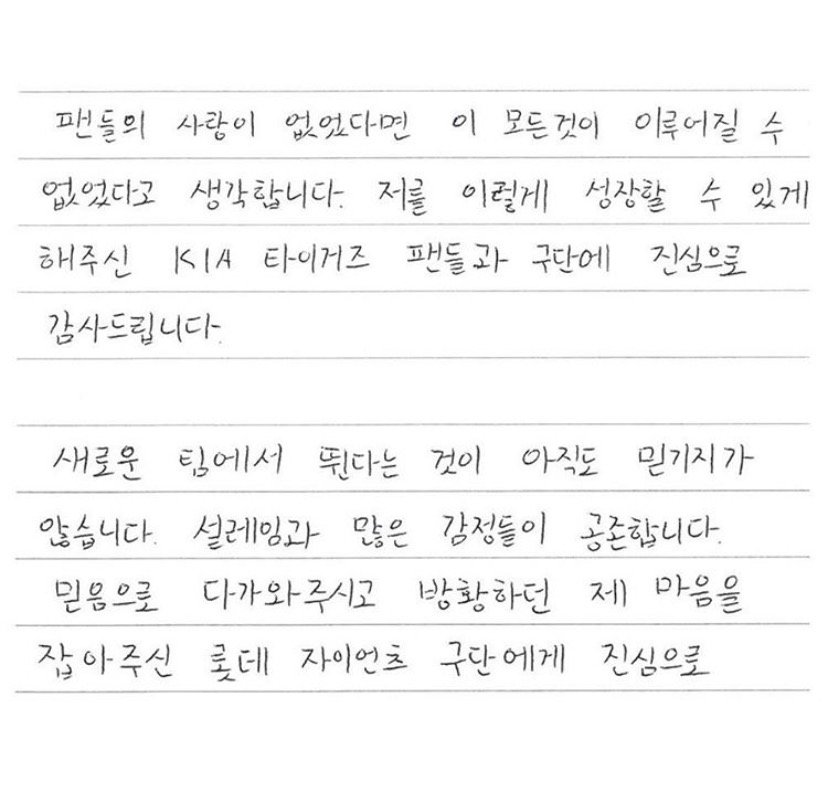 팬들의 사랑이 없었다면 이 모든것이 이루어질 수
없었다고 생각합니다. 저를 이렇게 성장할 수 있게
해주신 KIA 타이거즈 팬들과 구단에 진심으로
감사드립니다.
새로운 팀에서 뛴다는 것이 아직도 믿기지가
않습니다. 설레임과 많은 감정들이 공존합니다.
믿음으로 다가와주시고 방황하던 제 마음을
잡아주신 롯데 자이언츠 구단에게 진심으로